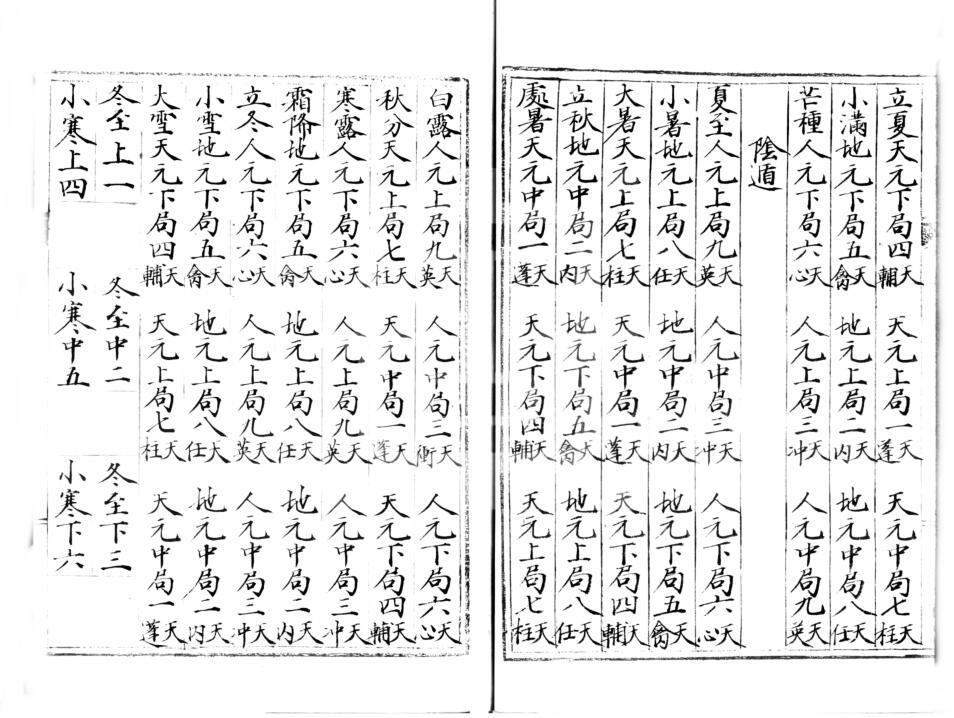 立夏天元下局四天輔 天元上局一天蓬 天元中局七天柱
小滿地元下局五天禽 地元上局二天内 地元中局八天任
芒種人元下局六天心 人元上局三天冲 人元中局九天英
陰遁
夏至人元上局九天英 人元中局三天冲 人元下局六天心
小暑地元上局八天任 地元中局二天内 地元下局五天禽
大暑天元上局七天柱 天元中局一天蓬 天元下局四天輔
立秋地元中局二天内 地元下局五天禽 地元上局八天任
處暑天元中局一天蓬 天元下局四天輔 天元上局七天柱
白露人元上局九天英 人元中局三天衝 人元下局六天心
秋分天元上局七天柱 天元中局一天蓬 天元下局四天輔
寒露人元下局六天心 人元上局九天英 人元中局三天冲
霜降地元下局五天禽 地元上局八天任 地元中局二天内
立冬人元下局六天心 人元上局九天英 人元中局三天冲
小雪地元下局五天禽 地元上局八天任 地元中局二天内
大雪天元下局四天輔 天元上局七天柱 天元中局一天蓬
冬至上一 冬至中二 冬至下三
小寒上四 小寒中五 小寒下六